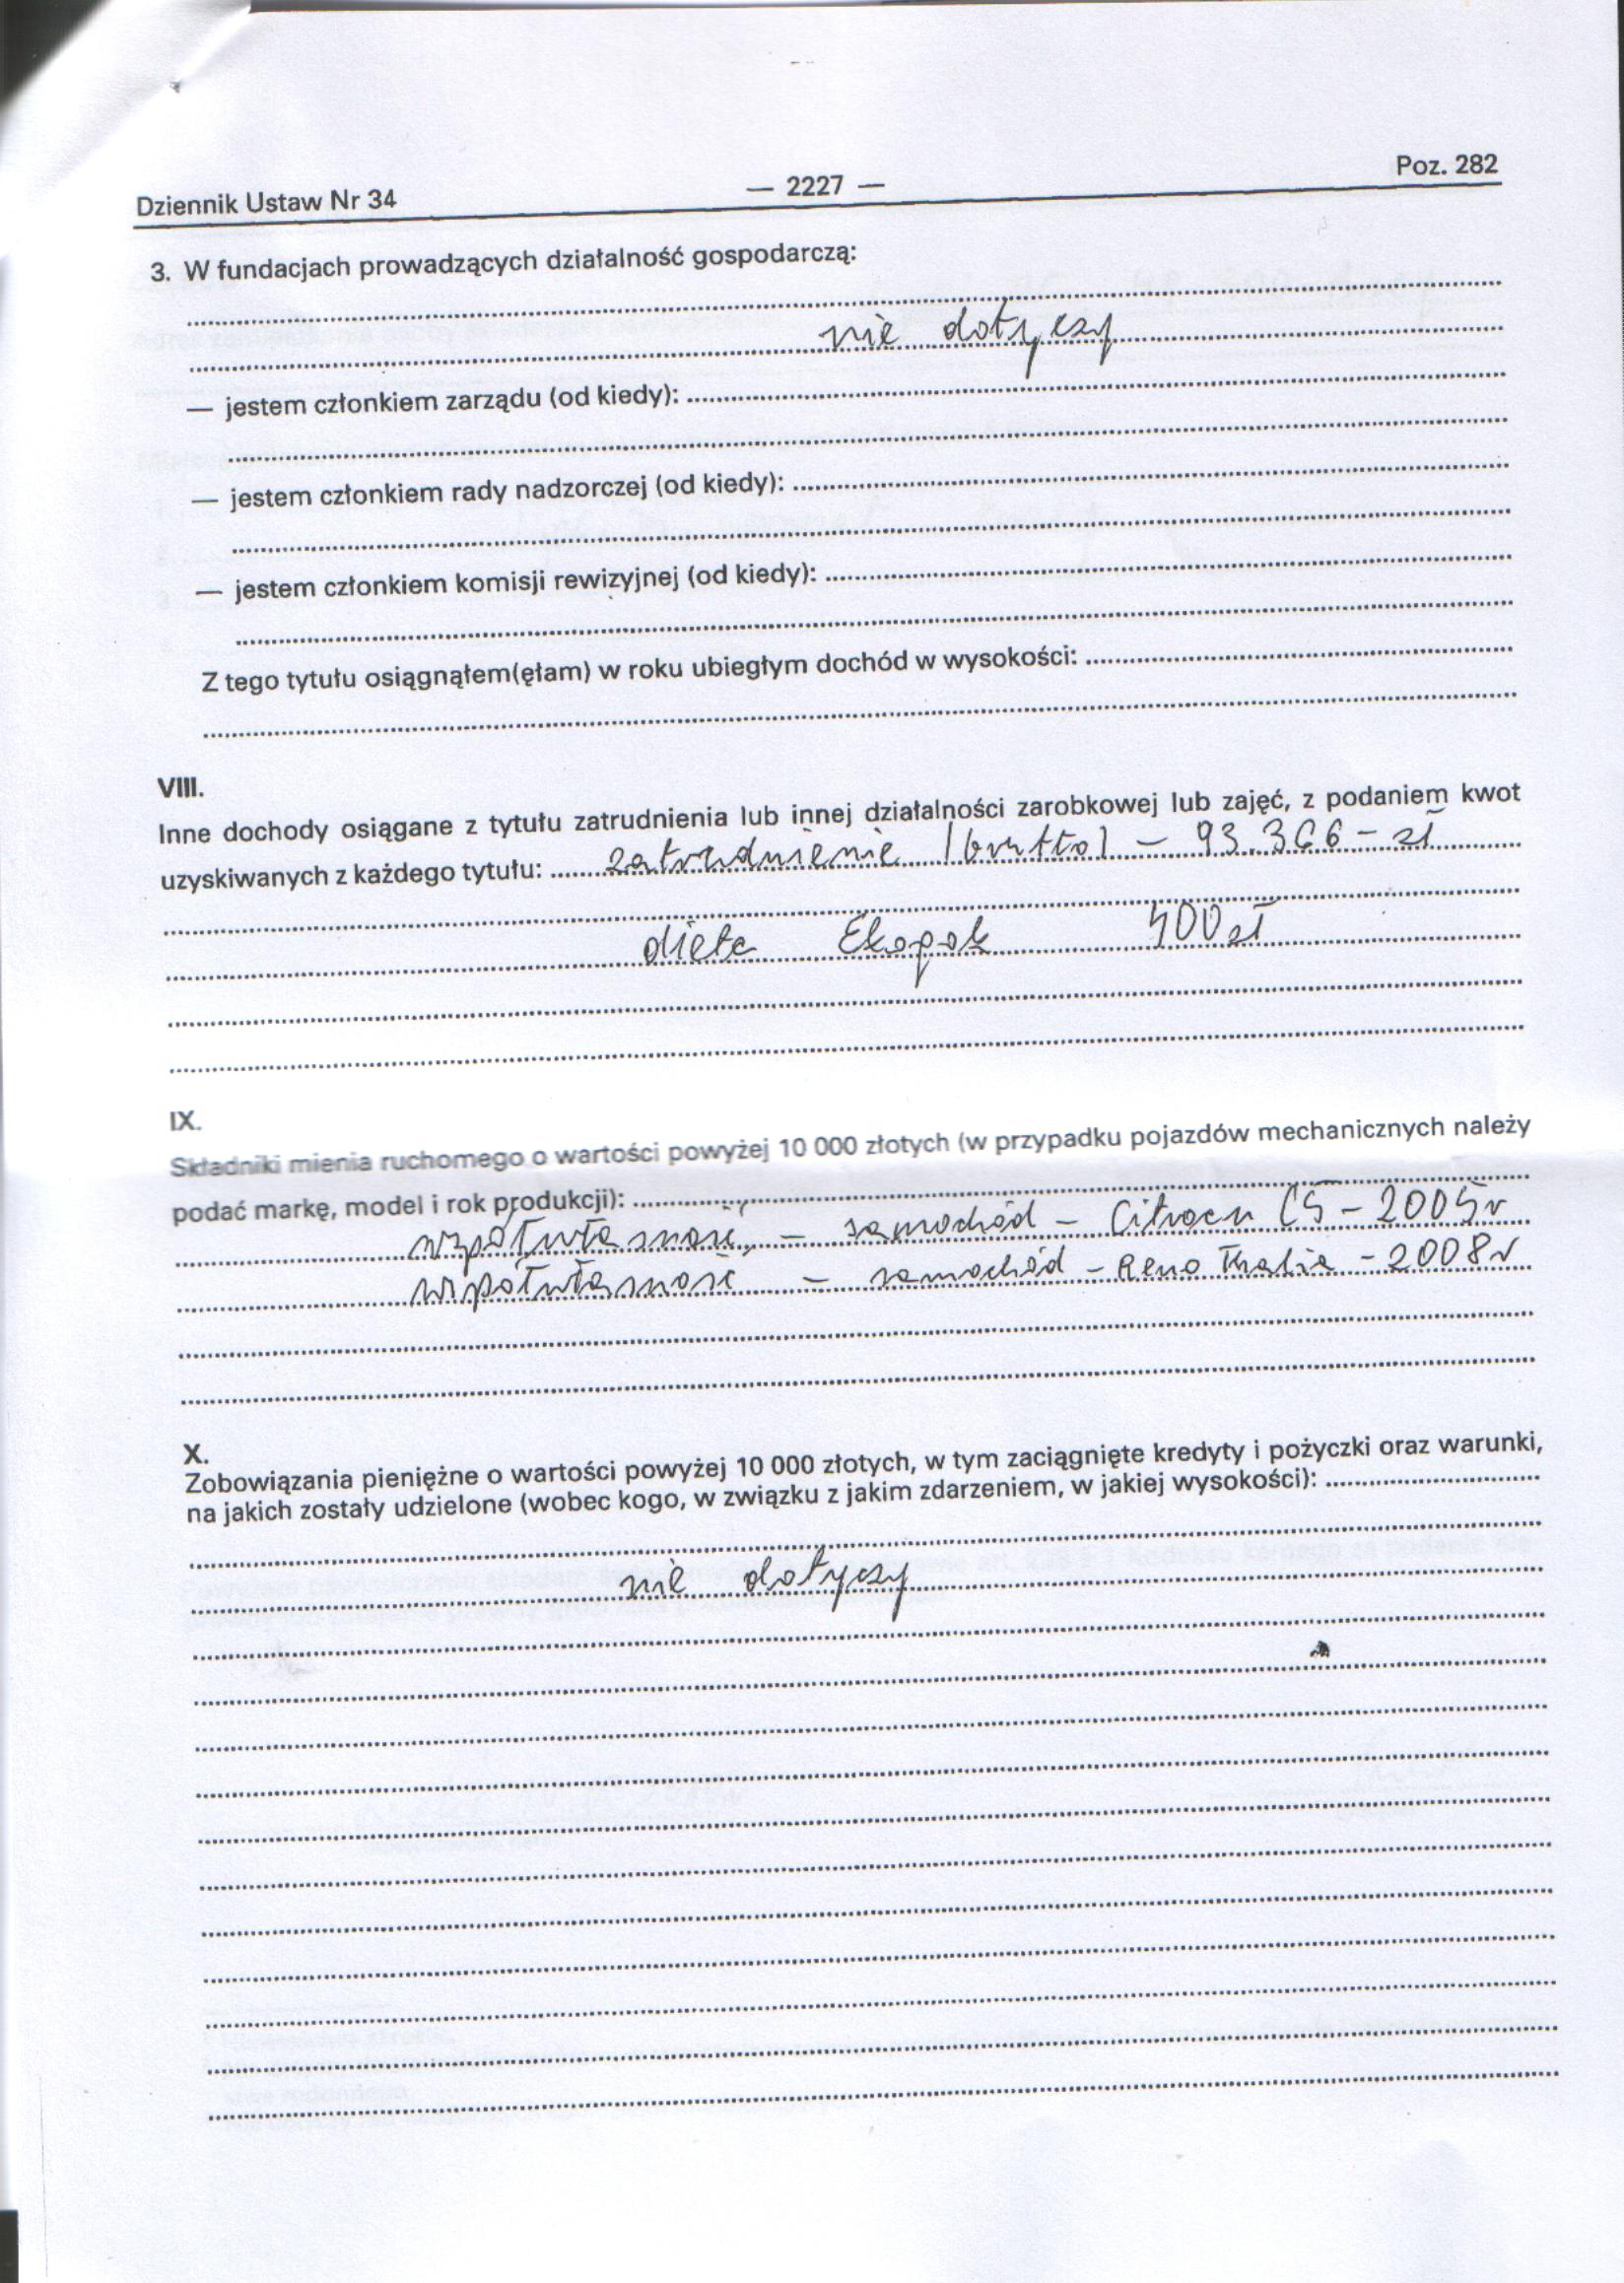 Dziennik Ustaw Nr 34 — 2227 — Poz. 282
3. W fundacjach prowadzących działalność gospodarczą:
nie dotyczy
— jestem członkiem zarządu (od kiedy):
— jestem członkiem rady nadzorczej (od kiedy):
— jestem członkiem komisji rewizyjnej (od kiedy):
Z tego tytułu osiągnąłem(ęłam) w roku ubiegłym dochód w wysokości:
VIII.
Inne dochody osiągane z tytułu zatrudnienia lub innej działalności zarobkowej lub zajęć, z podaniem kwot
uzyskiwanych z każdego tytułu: zatrudnienie (brutto) — 93.366 - zł
dieta Ekopok 400 zł
IX.
Składniki mienia ruchomego o wartości powyżej 10 000 złotych (w przypadku pojazdów mechanicznych należy
podać markę, model i rok produkcji):
współwłasność, — samochód — Citroen C5 - 2005r
współwłasność — samochód - Reno Thalia - 2008r
X.
Zobowiązania pieniężne o wartości powyżej 10 000 złotych, w tym zaciągnięte kredyty i pożyczki oraz warunki,
na jakich zostały udzielone (wobec kogo, w związku z jakim zdarzeniem, w jakiej wysokości):
nie dotyczy